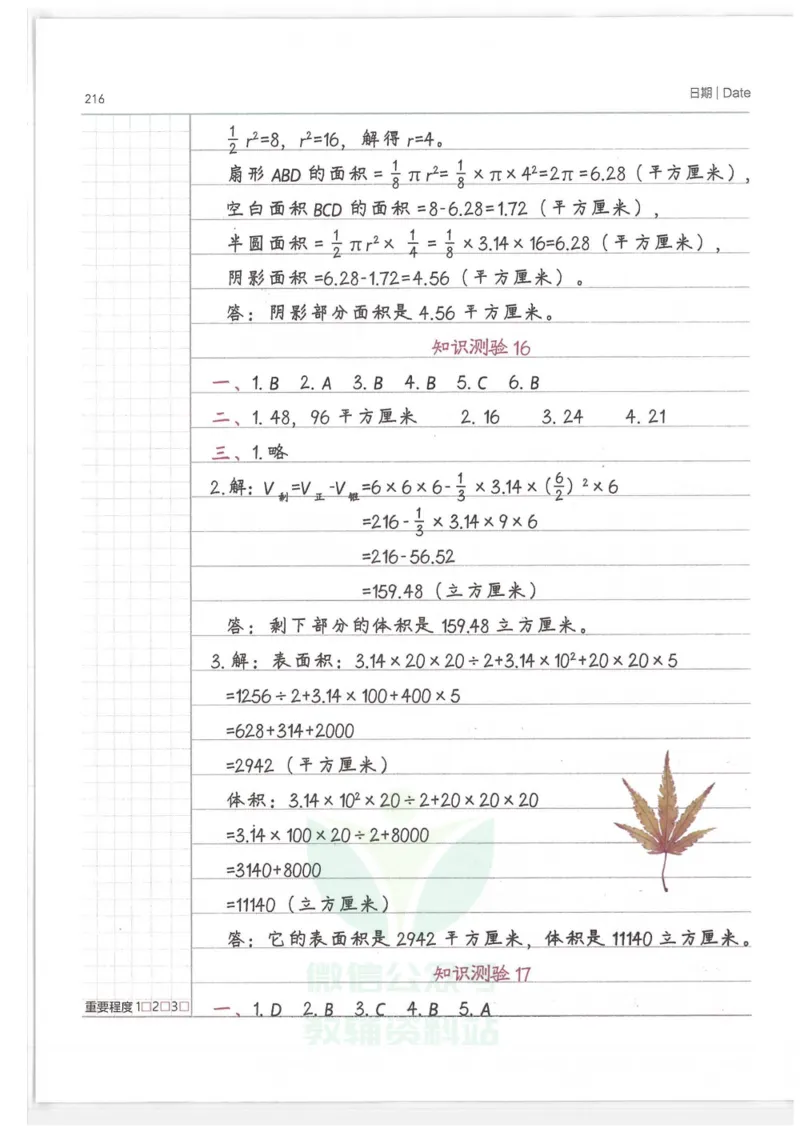 216
日期 | Date
1/2 r²=8，r²=16，解得 r=4。
扇形 ABD 的面积 = 1/8 πr²= 1/8 ×π×4²=2π=6.28（平方厘米），
空白面积 BCD 的面积 =8-6.28=1.72（平方厘米），
半圆面积 = 1/2 πr²× 1/4 = 1/8 ×3.14×16=6.28（平方厘米），
阴影面积 =6.28-1.72=4.56（平方厘米）。
答：阴影部分面积是 4.56 平方厘米。
知识测验 16
一、1. B 2. A 3. B 4. B 5. C 6. B
二、1. 48，96 平方厘米 2. 16 3. 24 4. 21
三、1. 略
2. 解：V剩=V正-V锥=6×6×6- 1/3 ×3.14×(6/2)²×6
=216- 1/3 ×3.14×9×6
=216-56.52
=159.48（立方厘米）
答：剩下部分的体积是 159.48 立方厘米。
3. 解：表面积：3.14×20×20÷2+3.14×10²+20×20×5
=1256÷2+3.14×100+400×5
=628+314+2000
=2942（平方厘米）
体积：3.14×10²×20÷2+20×20×20
=3.14×100×20÷2+8000
=3140+8000
=11140（立方厘米）
答：它的表面积是 2942 平方厘米，体积是 11140 立方厘米。
知识测验 17
微信公众号
重要程度 1□2□3□
一、1. D 2. B 3. C 4. B 5. A
教辅资料站